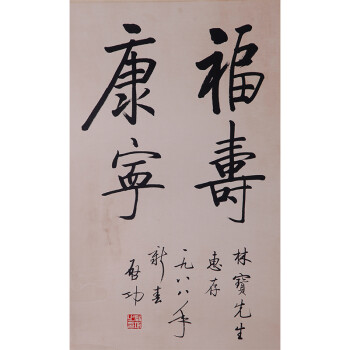 福壽
康寧
林寶先生
惠存
一九八八年
新春
啟功